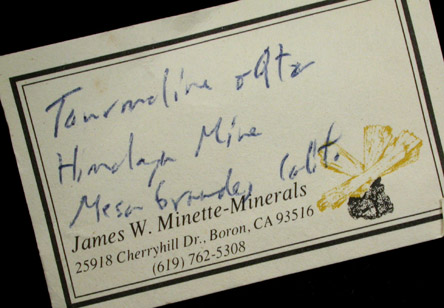 Tourmaline + Qtz
Himalaya Mine
Mesa Grande, Calif.
James W. Minette-Minerals
25918 Cherryhill Dr., Boron, CA 93516
(619) 762-5308